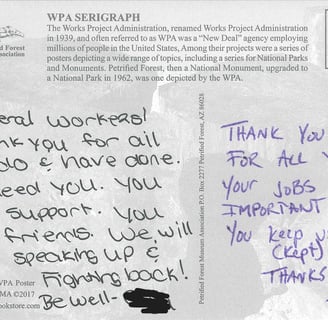 WPA SERIGRAPH
The Works Project Administration, renamed Works Project Administration
in 1939, and often referred to as WPA was a "New Deal" agency employing
millions of people in the United States, Among their projects were a series of
posters depicting a wide range of topics, including a series for National Parks
and Monuments. Petrified Forest, then a National Monument, upgraded to
a National Park in 1962, was one depicted by the WPA.
d Forest
ssociation
eral workers!
nk you for all
do & have done.
eed you. You
support. You
friends. We will
speaking up &
Fighting back!
Be well-
WPA Poster
MA ©2017
okstore.com
Petrified Forest Museum Association P.O. Box 2277 Petrified Forest, AZ 86028
THANK YOU
FOR ALL Y
YOUR JOBS
IMPORTANT
YOU KEEP
(KEPT)
THANKS